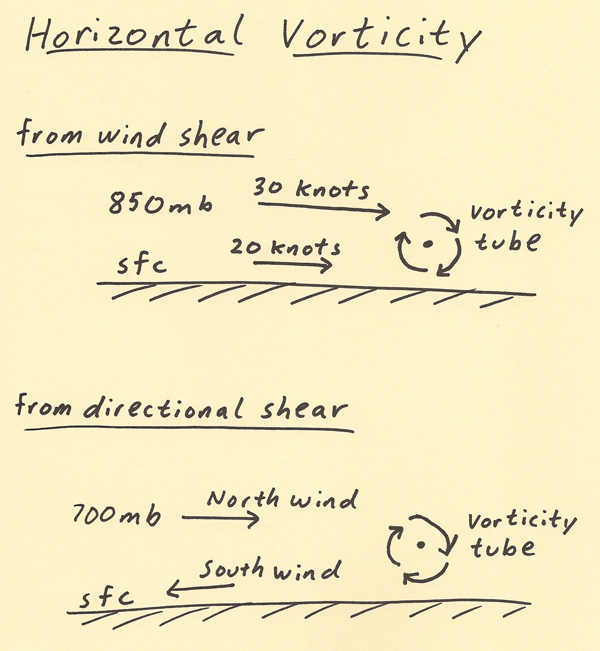 Horizontal Vorticity
from wind shear
850mb 30 knots vorticity
tube
sfc 20 knots
from directional shear
700mb North wind vorticity
tube
sfc South wind